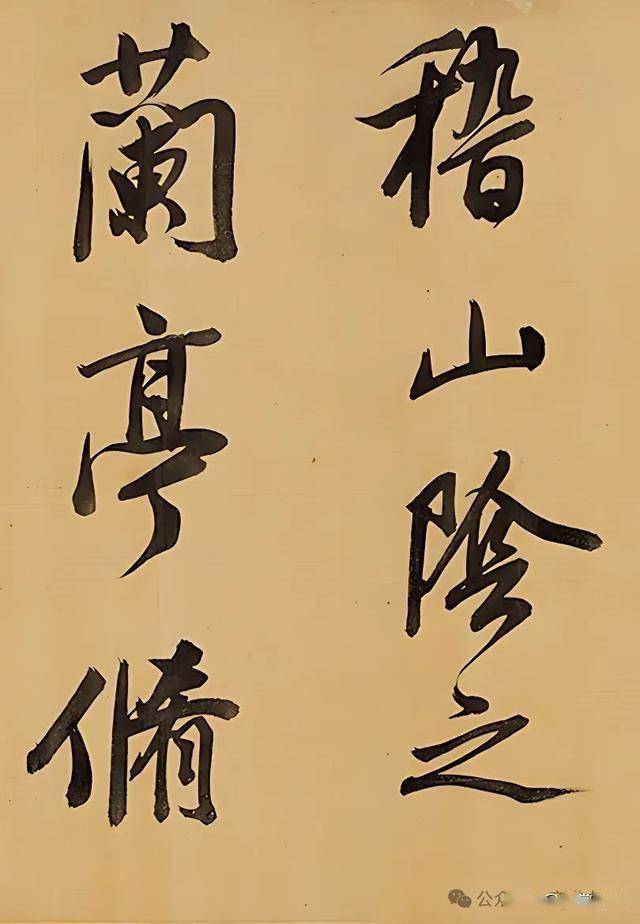 稽山陰之
蘭亭脩
公众